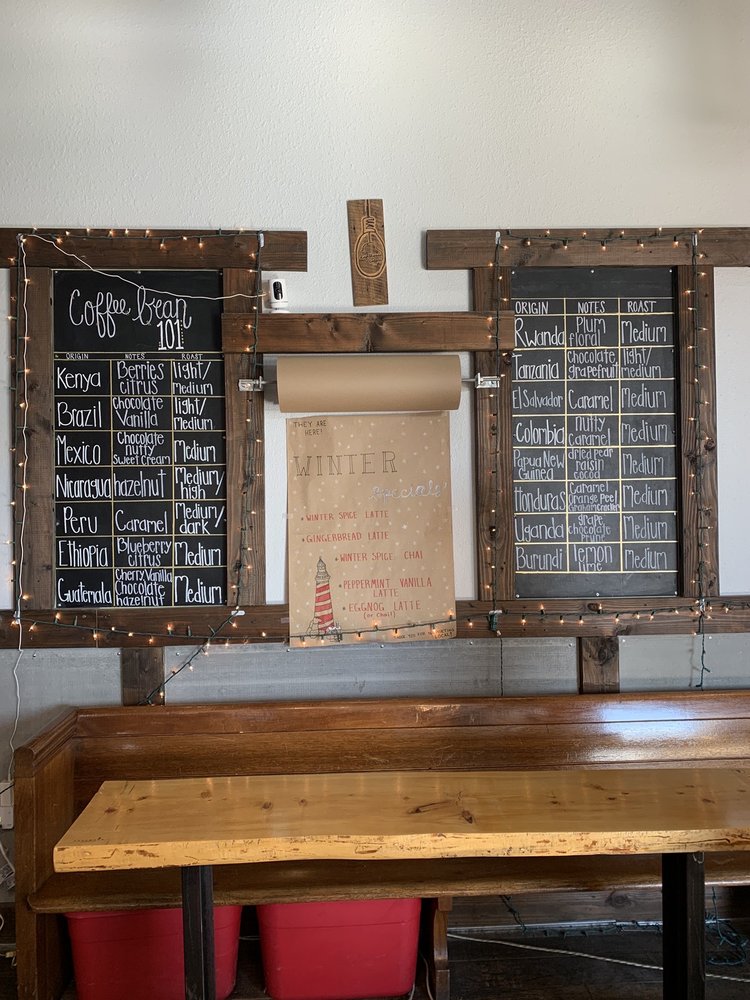 Coffee bean
101
ORIGIN NOTES ROAST
Kenya Berries citrus light/ Medium
Brazil Chocolate Vanilla light/ Medium
Mexico Chocolate nutty Sweet Cream Medium
Nicaragua hazelnut Medium/ high
Peru Caramel Medium/ dark
Ethiopia Blueberry citrus Medium
Guatemala Cherry Vanilla Chocolate hazelnut Medium
THEY ARE
HERE!
WINTER
Specials
• WINTER SPICE LATTE
• GINGERBREAD LATTE
• WINTER SPICE CHAI
• PEPPERMINT VANILLA
LATTE
• EGGNOG LATTE
(or Chai!)
ORIGIN NOTES ROAST
Rwanda Plum floral Medium
Tanzania chocolate grapefruit light/ medium
El Salvador Caramel Medium
Colombia nutty caramel Medium
Papua New Guinea dried pear raisin cocoa Medium
Honduras Caramel orange peel Graham Cracker Medium
Uganda grape chocolate Medium
Burundi lemon lime Medium